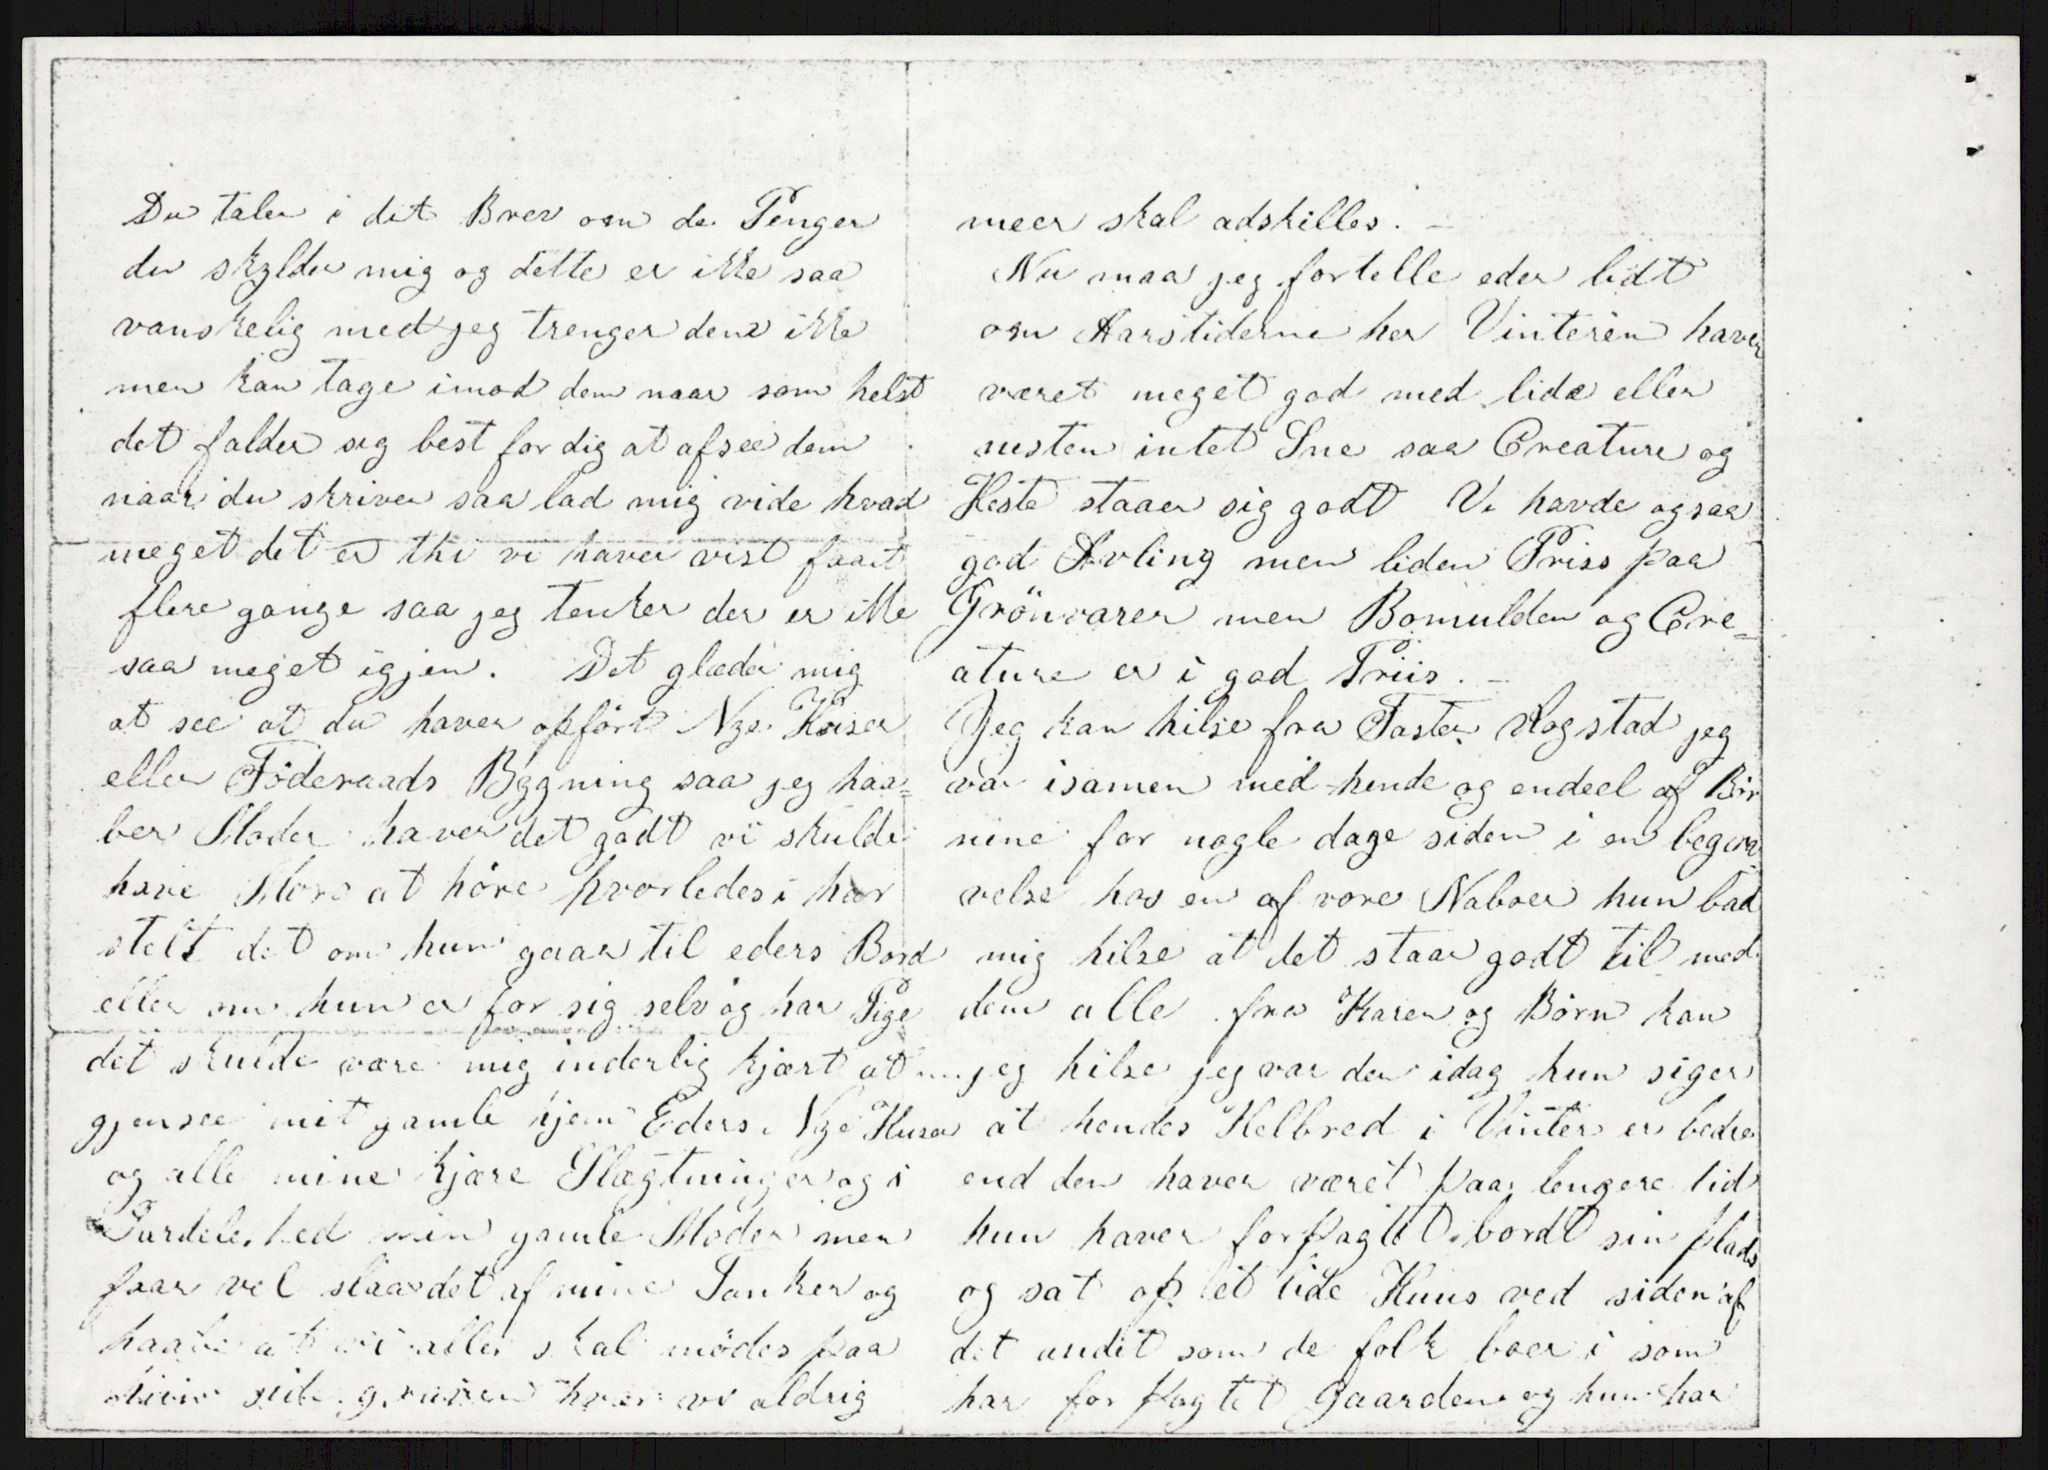 Du taler i dit Brev om de Penger
du skylder mig og dette er ikke saa
vanskelig med jeg trenger dem ikke
men kan tage imod dem naar som helst
det falder sig best for dig at afsee dem
naar du skriver saa lad mig vide hvad
meget det er thi vi haver vist faaet
flere gange saa jeg tenker der er ikke
saa meget igjen. Det glæder mig
at see at du haver opfört Nye Huser
eller Föderaads Bygning saa jeg haa=
ber Moder haver det godt vi skulde
have Moro at höre hvorledes i har
stelt det om hun gaar til eders Bord
eller om hun er for sig selv og har Pige
det skulde være mig inderlig kjært at
gjensee mit gamle hjem Eders Nye Huser
og alle mine kjære Slægtninger og i
Særdeleshed min gamle Moder men
faar vel slaa det af mine Tanker og
haabe at vi alle skal mödes paa
hiin side graven hvor vi aldrig
meer skal adskilles. —
Nu maa jeg fortelle eder lidt
om Aarstiderne her Vinteren haver
været meget god med lide eller
nesten intet Sne saa Creature og
Heste staaer sig godt Vi havde ogsaa
god Avling men liden Priss paa
Grönvarer men Bomulden og Cre=
ature er i god Priis. —
Jeg kan hilse fra Faster Rogstad jeg
var isamen med hende og endeel af Bör
nine for nogle dage siden i en begra
velse hos en af vore Naboer hun bad
mig hilse at det staar godt til med
dem alle fra Karen og Börn kan
jeg hilse jeg var der idag hun siger
at hendes Helbred i Vinter er bedre
end den haver været paa lengere tid
hun haver forpagtet bordt sin plads
og sat op et lide Huus ved siden af
det andet som de folk boer i som
har forpagtet Gaarden og hun har